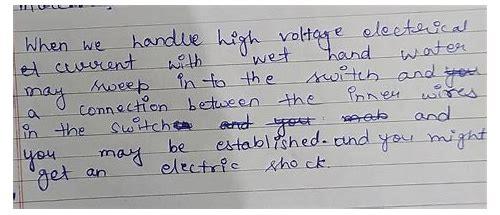 When we handle high voltage electrical
current with wet hand water
may sweep in to the switch and you
a connection between the inner wires
in the switch and you and
you may be established. and you might
get an electric shock.